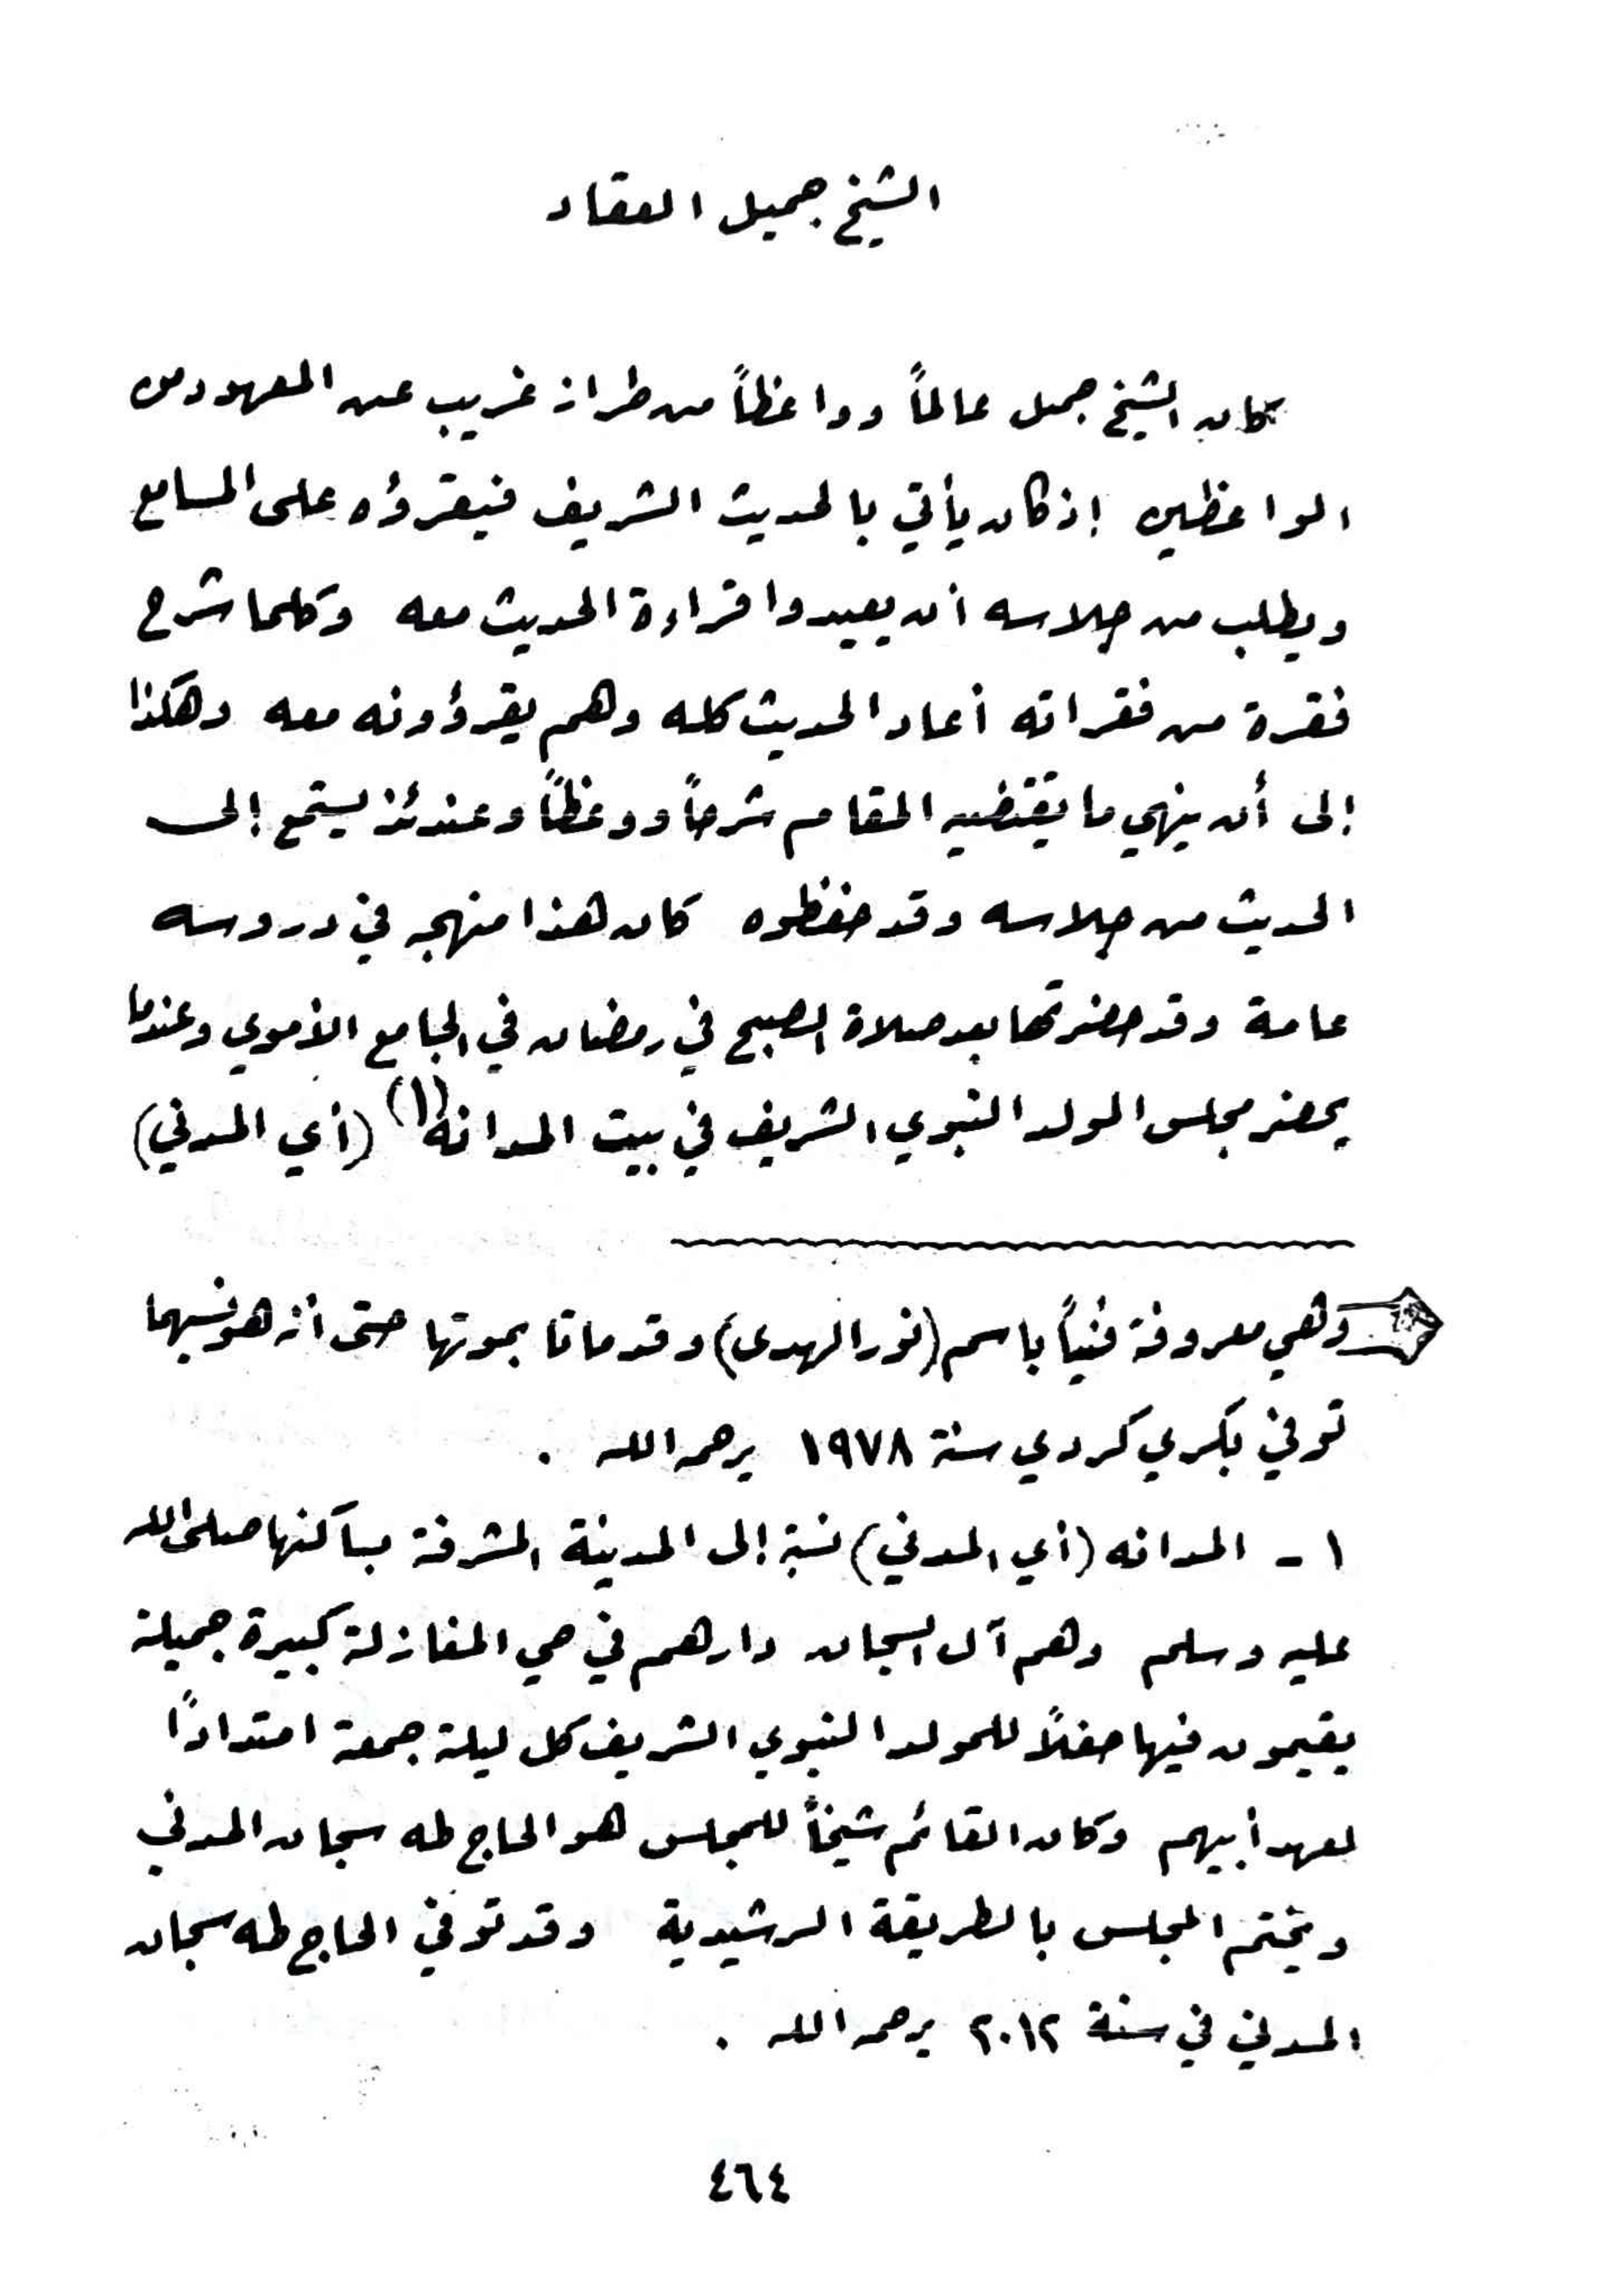 الشيخ جميل العقاد
كان الشيخ جميل عالماً وواعظاً من طراز غريب عن المعهود من
الواعظين إذ كان يأتي بالحديث الشريف فيقرؤه على المسامع
ويطلب من جلاسه أن يعيدوا قراءة الحديث معه وكلما شرح
فقرة من فقراته أعاد الحديث كله وهم يقرؤونه معه وهكذا
إلى أن ينهي ما يقتضيه المقام شرحاً ووعظاً وعندئذ يستمع إلى
الحديث من جلاسه وقد حفظوه كان هذا منهجه في دروسه
عامة وقد حضرتها بعد صلاة الصبح في رمضان في الجامع الأموي وعندما
يحضر مجلس المولد النبوي الشريف في بيت المدانه (١) (أي المدني)
وهي معروفة فنياً باسم (نور الهدى) وقد ماتا بموتها حتى أنه هو
توفي بكري كردي سنة ١٩٧٨ يرحمه الله .
١ - المدانه (أي المدني) نسبة إلى المدينة المشرفة بساكنها صلى الله
عليه وسلم وهم آل السجان دارهم في حي المغازلة كبيرة جميلة
يقيمون فيها حفلاً للمولد النبوي الشريف كل ليلة جمعة امتداداً
لعهد أبيهم وكان القائم شيخاً للمجلس هو الحاج طه سجان المدني
ويختم المجلس بالطريقة الرشيدية وقد توفي الحاج طه سجان
المدني في سنة ٢٠١٢ يرحمه الله .
٤٦٤